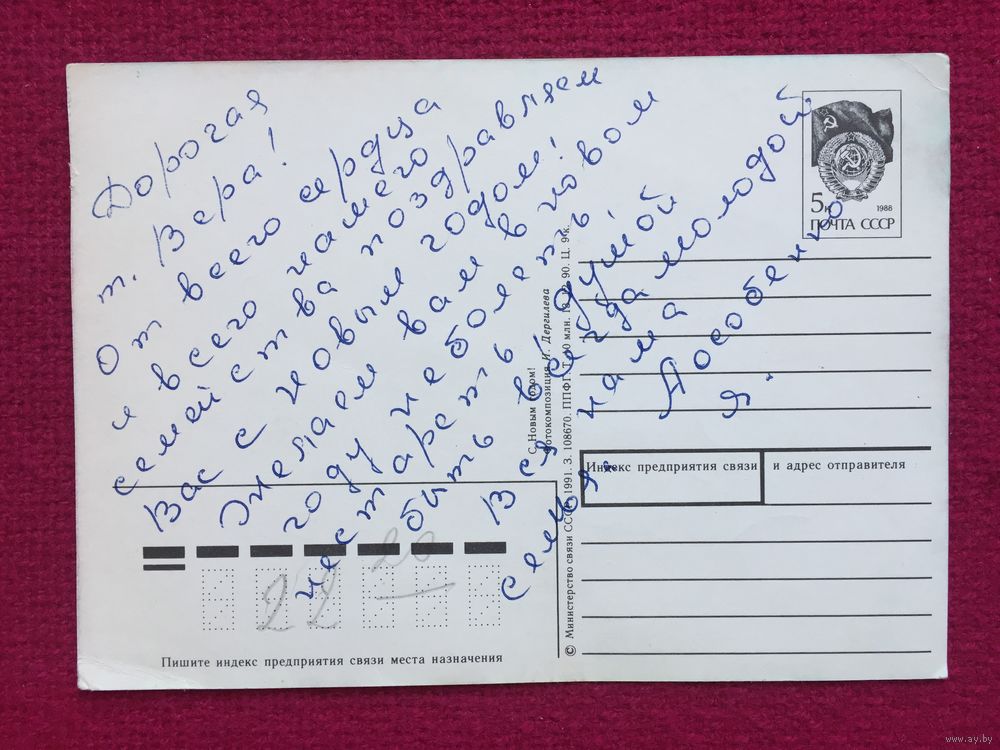 Дорогая
т. Вера!
От всего сердца
и всего нашего
семейства поздравляем
Вас с новым годом!
Желаем вам в новом
году не болеть,
нестареть душой
быть всегда молодой
Вся наша
семья.
А особенно
я.
5к 1988
ПОЧТА СССР
С Новым годом!
Фотокомпозиция И. Дергилева
© Министерство связи СССР. 1991. З. 108670. ППФГ. Т. млн. 90. Ц. 9 к.
Индекс предприятия связи и адрес отправителя
20
22
Пишите индекс предприятия связи места назначения
www.ay.by